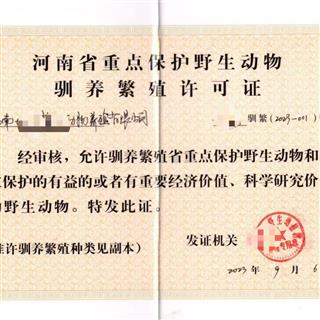 河南省重点保护野生动物
驯养繁殖许可证
驯繁(2023-001)
经审核，允许驯养繁殖省重点保护野生动物和
保护的有益的或者有重要经济价值、科学研究价
野生动物。特发此证。
准许驯养繁殖种类见副本）
发证机关
2023年9月6